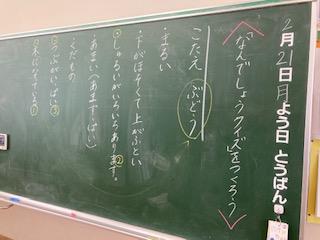 2月21日月よう日 とうばん
「なんでしょうクイズ」をつくろう
こたえ ぶどう
・まるい
・下がほそくて上がふとい
・しゅるいがいろいろあります。②
・あまい(あまずっぱい)
・くだもの
・つぶがいっぱい③
・木になっている①